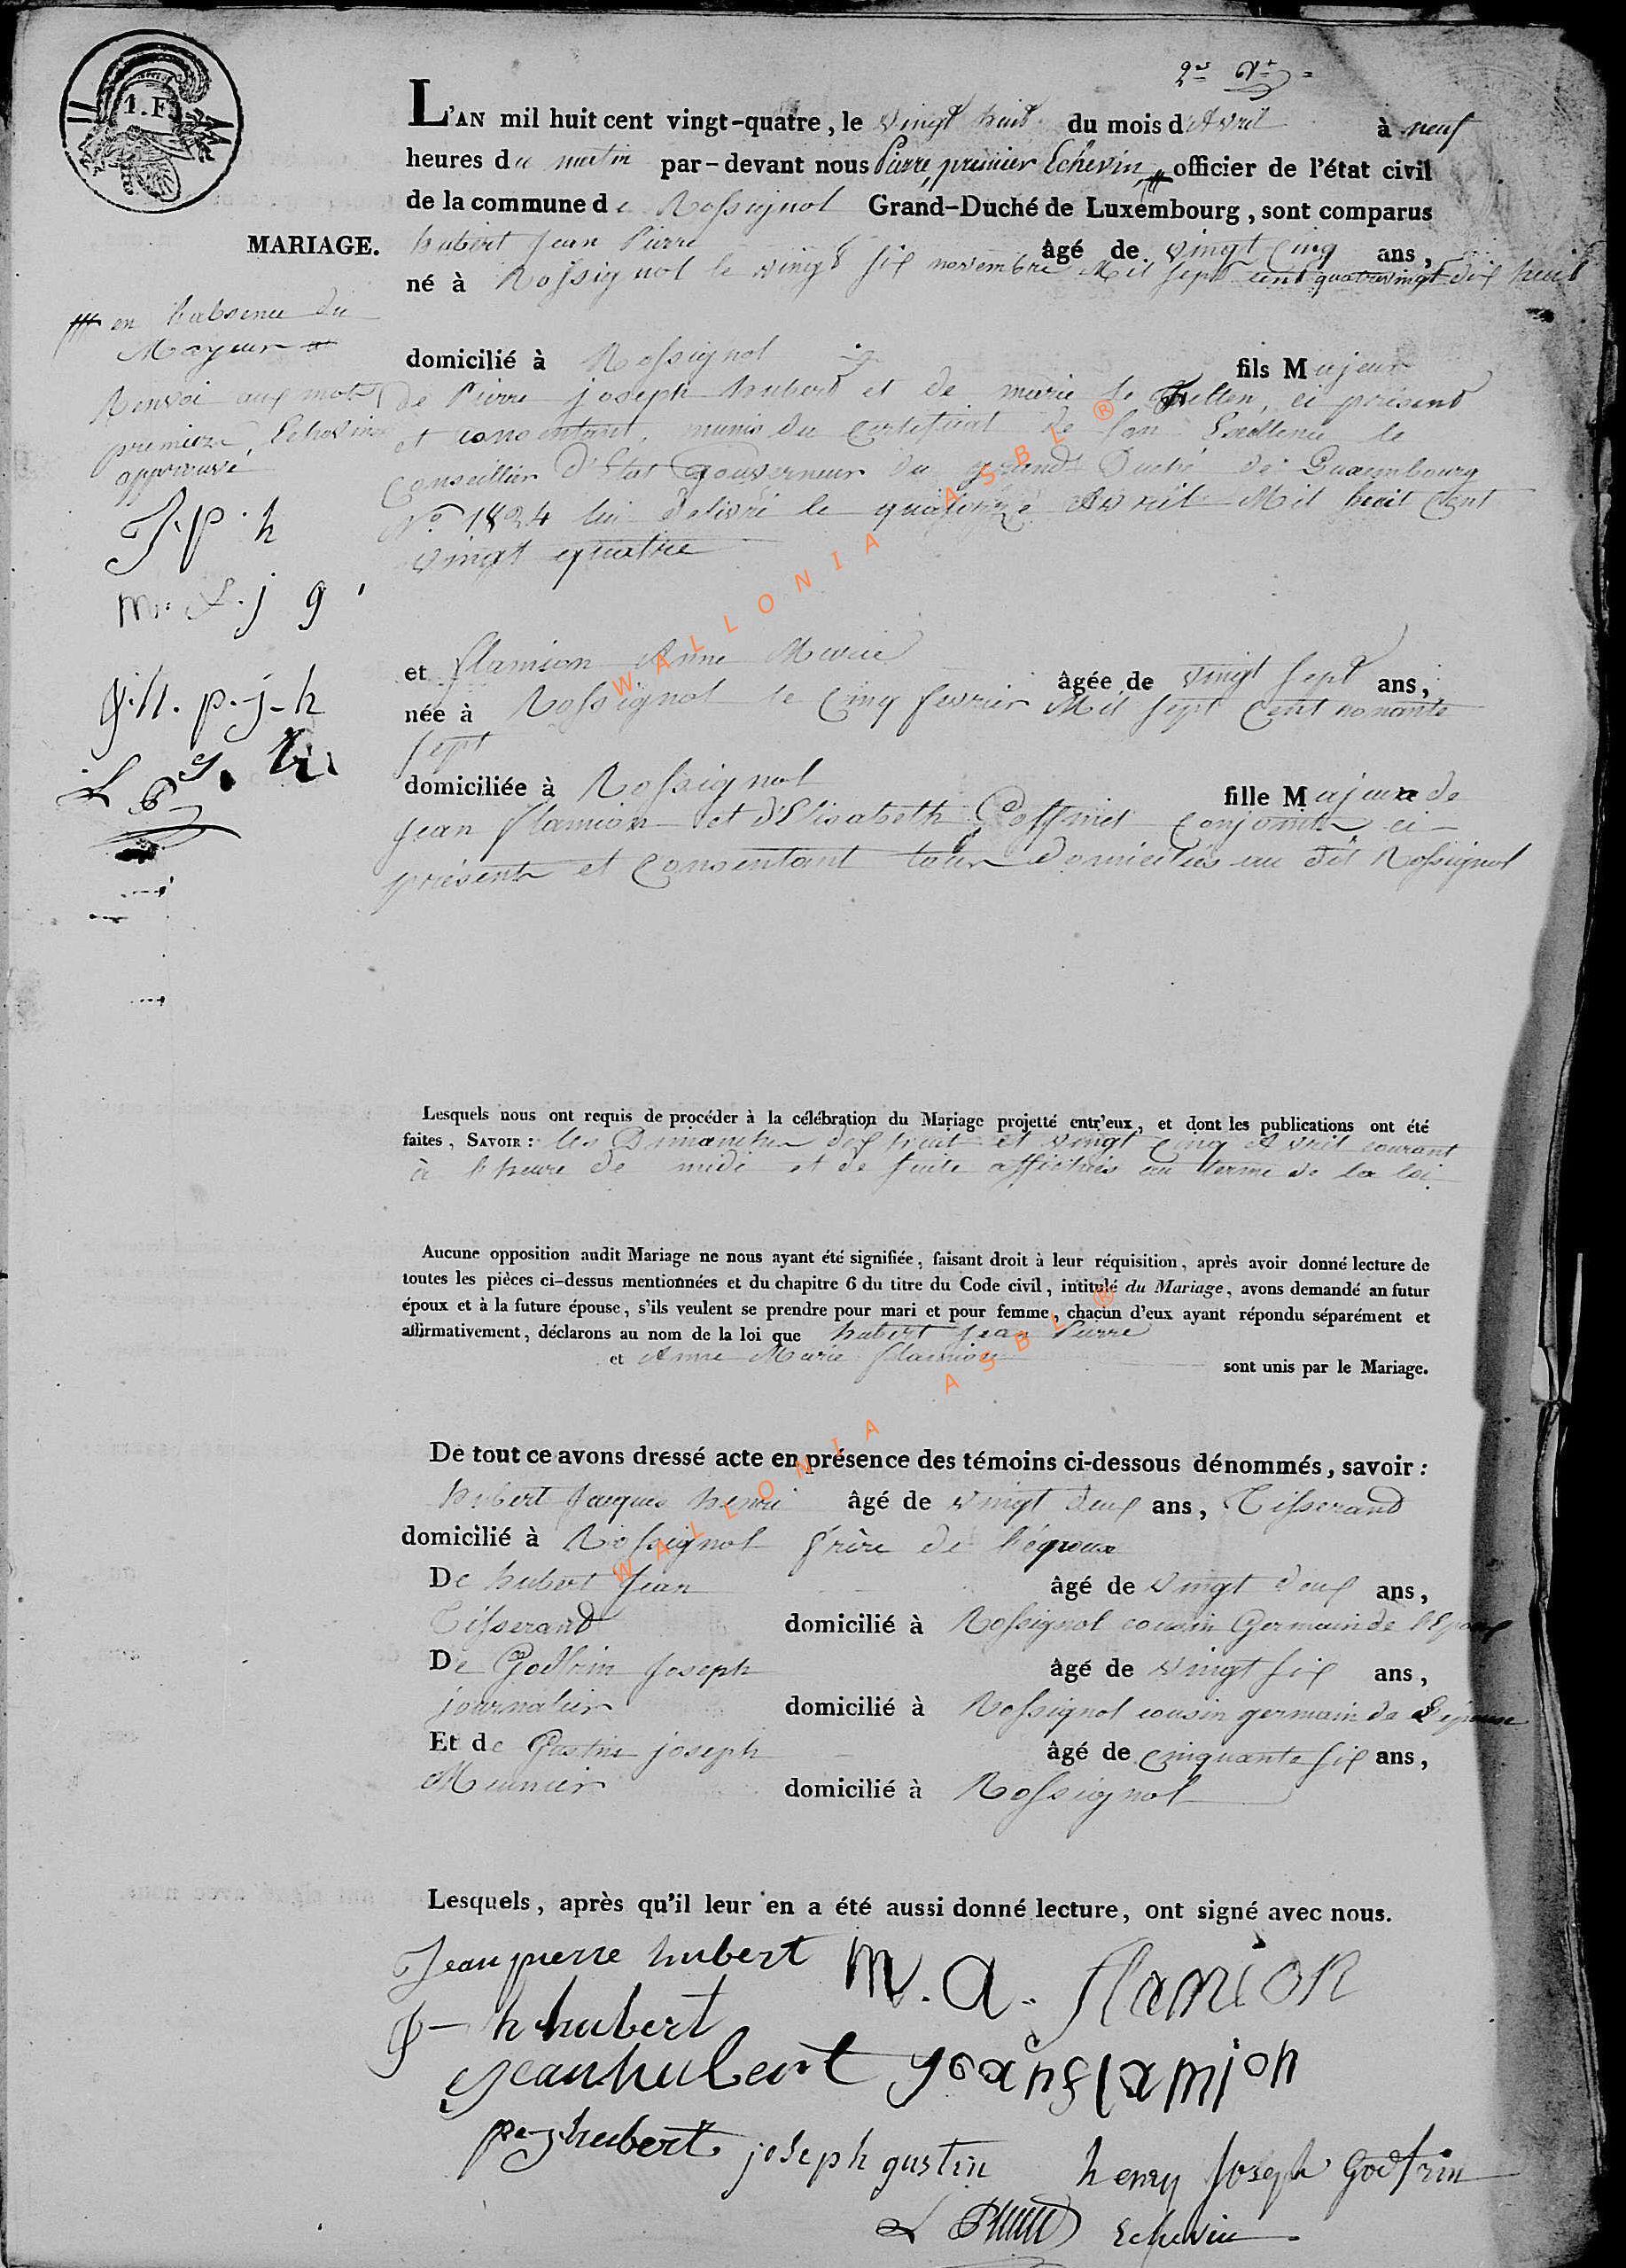 2e
L'AN mil huit cent vingt-quatre, le vingt huit du mois d'Avril à neuf
heures du matin par-devant nous Pierre, premier Echevin, officier de l'état civil
de la commune de Rossignol Grand-Duché de Luxembourg, sont comparus
1. F.
MARIAGE.
hubert Jean Pierre âgé de vingt Cinq ans,
né à Rossignol le vingt six novembre Mil sept cent quatrevingt dix huit
domicilié à Rossignol fils Majeur
de Pierre joseph hubert et de marie, ci présent
et consentant, munis du certificat de son Excellence le
Conseiller d'Etat Gouverneur du grand Duché de Luxembourg
No 1824 lui délivré le quatorze Avril Mil huit Cent
vingt quatre
en l'absence du
Mayeur
Renvoi aux mots
premier Echevin
approuvé
J. p. h
m. j g
j. h. p. j. h
et flamion Anne Marie âgée de vingt sept ans,
née à Rossignol le Cinq fevrier Mil sept Cent nonante
sept
domiciliée à Rossignol fille Majeure de
jean flamion et d'Elisabeth Goffinet Conjoints ci-
présents et Consentant tous domiciliés au dit Rossignol
Lesquels nous ont requis de procéder à la célébration du Mariage projetté entr'eux, et dont les publications ont été
faites, SAVOIR : les Dimanches dix huit et vingt cinq Avril courant
à l'heure de midi et de suite affichés au terme de la loi
Aucune opposition audit Mariage ne nous ayant été signifiée, faisant droit à leur réquisition, après avoir donné lecture de
toutes les pièces ci-dessus mentionnées et du chapitre 6 du titre du Code civil, intitulé du Mariage, avons demandé au futur
époux et à la future épouse, s'ils veulent se prendre pour mari et pour femme, chacun d'eux ayant répondu séparément et
affirmativement, déclarons au nom de la loi que hubert jean Pierre
et Anne Marie flamion sont unis par le Mariage.
De tout ce avons dressé acte en présence des témoins ci-dessous dénommés, savoir :
hubert Jacques henri âgé de vingt deux ans, Tisserand
domicilié à Rossignol frère de l'époux
De hubert jean âgé de vingt deux ans,
Tisserand domicilié à Rossignol cousin Germain de l'Epoux
De Godfrin joseph âgé de vingt six ans,
journalier domicilié à Rossignol cousin germain de L'épouse
Et de Gustin joseph âgé de cinquante six ans,
Meunier domicilié à Rossignol
Lesquels, après qu'il leur en a été aussi donné lecture, ont signé avec nous.
Jean pierre hubert m. a. flamion
j - h hubert
jean hubert jean flamion
p. j hubert joseph gustin henry joseph Godfrin
Echevin
WALLONIA ASBL ®
WALLONIA ASBL ®